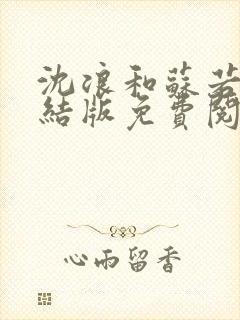 沈浪和蘇若
結版免費閱
心雨留香